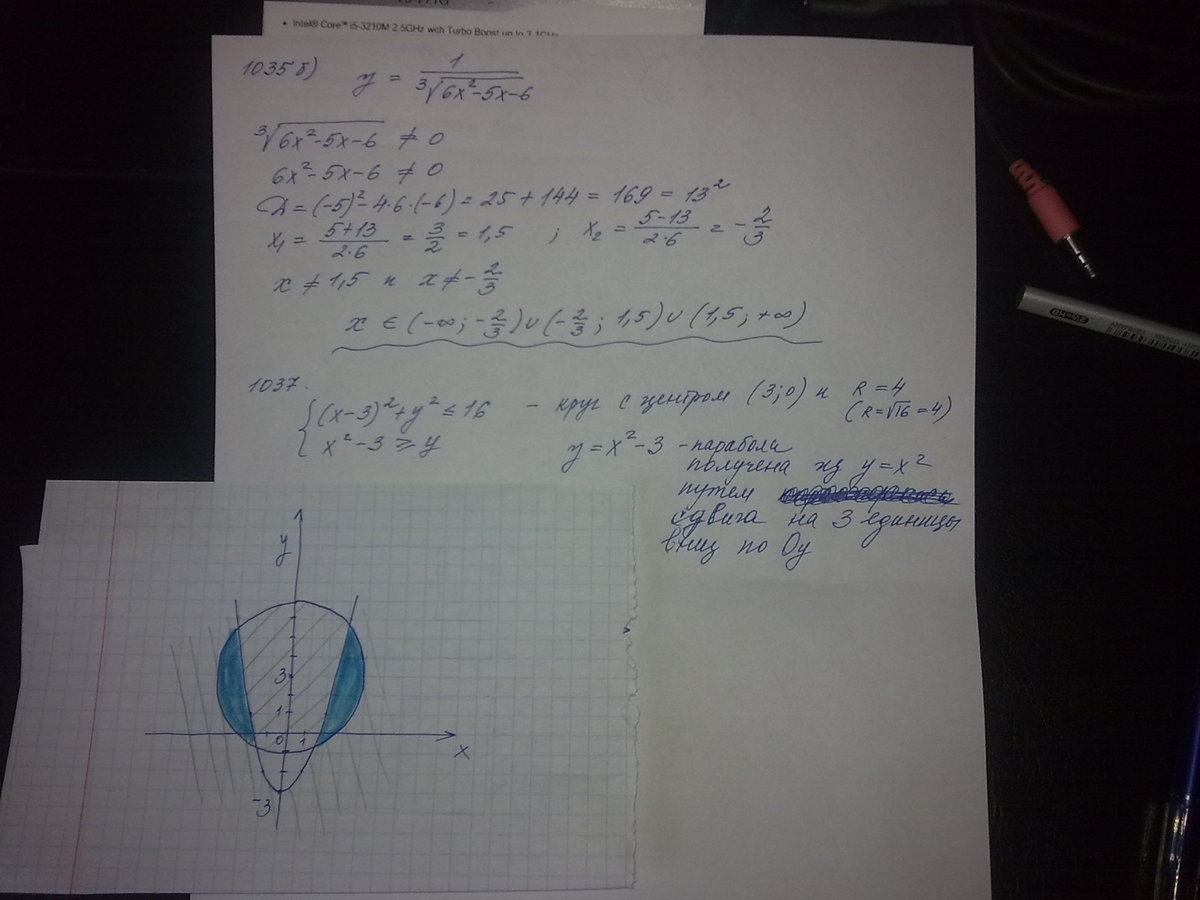 • Intel® Core™ i5-3210M 2.5GHz with Turbo Boost up to 3.1GHz
1035б) y = 1/∛(6x²-5x-6)
∛(6x²-5x-6) ≠ 0
6x²-5x-6 ≠ 0
D = (-5)²-4·6·(-6) = 25 + 144 = 169 = 13²
x₁ = (5+13)/(2·6) = 3/2 = 1,5 ; x₂ = (5-13)/(2·6) = -2/3
x ≠ 1,5 и x ≠ -2/3
x ∈ (-∞; -2/3) ∪ (-2/3; 1,5) ∪ (1,5; +∞)
1037.
{(x-3)²+y² ≤ 16 - круг с центром (3;0) и R = 4
(R=√16 =4)
x²-3 ≥ y y = x²-3 - парабола
получена из y = x²
путем
сдвига на 3 единицы
вниз по Oy
y
3
1
0 1
x
-3